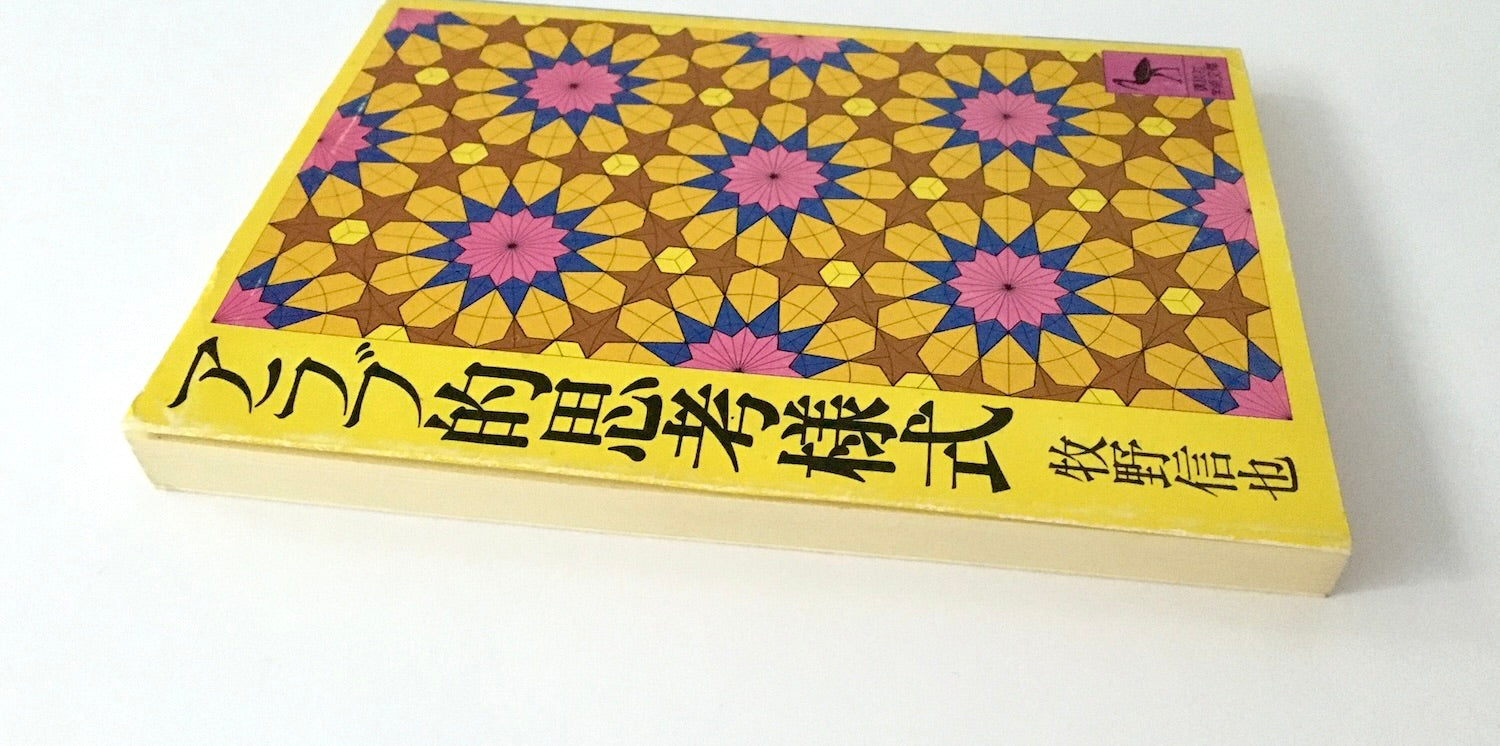 アラブ的思考様式
牧野信也
講談社
学術文庫